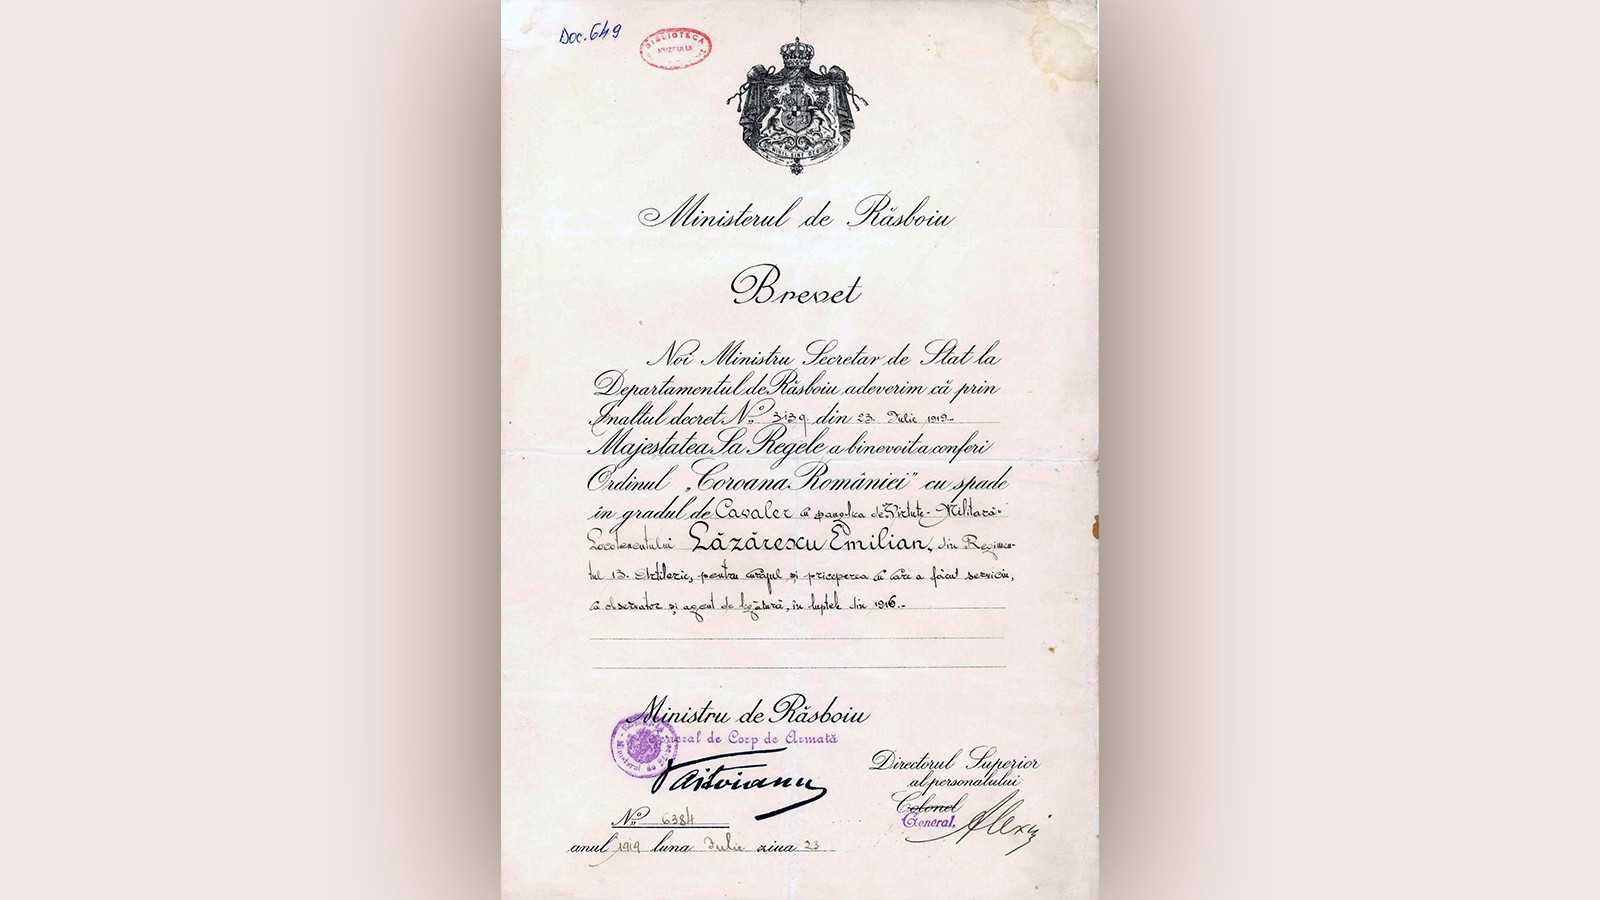 Doc. 649
BIBLIOTECA
MUZEULUI
NIHIL SINE DEO
Ministerul de Răsboiu
Brevet
Noi Ministru Secretar de Stat la
Departamentul de Răsboiu adeverim că prin
Inaltul decret No. 3139 din 23 Iulie 1919-
Majestatea Sa Regele a binevoit a conferi
Ordinul „Coroana României” cu spade
în gradul de Cavaler cu panglica de Virtute-Militară-
Locotenentului Lăzărescu Emilian, din Regimen-
tul 13. Artilerie, pentru curajul și priceperea cu care a făcut serviciu,
ca observator și agent de legătură, în luptele din 1916.-
Ministru de Răsboiu
General de Corp de Armată
Vaitoianu
No. 6384
anul 1919 luna Iulie ziua 23
Directorul Superior
al personalului
Colonel
General,